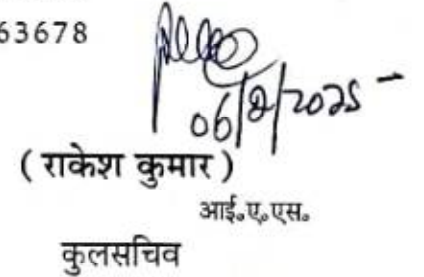 63678
06/2/2025
( राकेश कुमार )
आई०ए०एस०
कुलसचिव